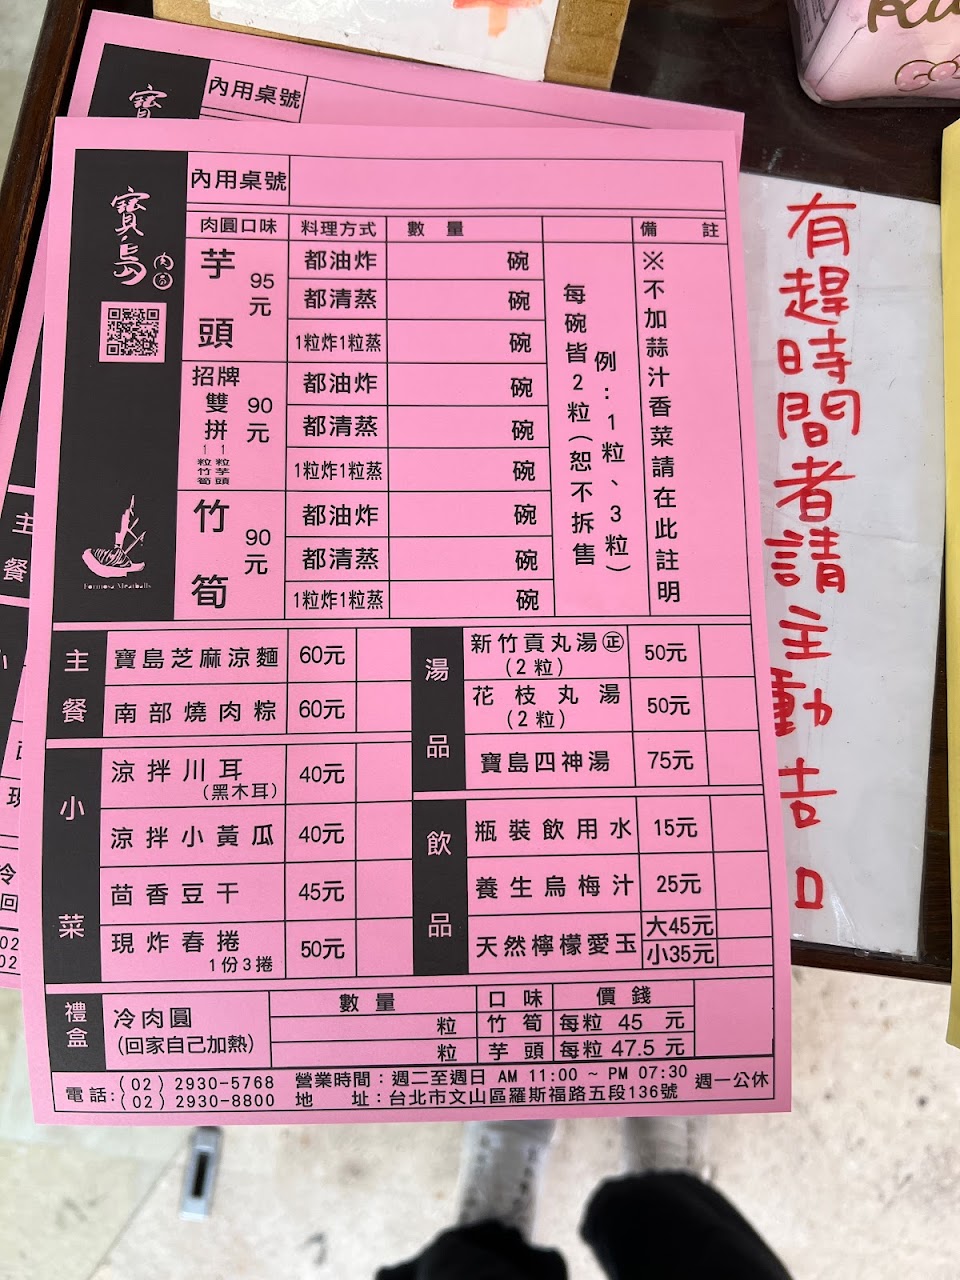 內用桌號
寶島肉圓
內用桌號
肉圓口味 料理方式 數量 備註
芋頭 95元
都油炸 碗
都清蒸 碗
1粒炸1粒蒸 碗
招牌雙拼 90元
1粒竹筍 1粒芋頭
都油炸 碗
都清蒸 碗
1粒炸1粒蒸 碗
竹筍 90元
都油炸 碗
都清蒸 碗
1粒炸1粒蒸 碗
每碗皆2粒(恕不拆售
例:1粒、3粒)
※不加蒜汁香菜請在此註明
Formosa Meatballs
主餐
寶島芝麻涼麵 60元
南部燒肉粽 60元
小菜
涼拌川耳 (黑木耳) 40元
涼拌小黃瓜 40元
茴香豆干 45元
現炸春捲 1份3捲 50元
湯品
新竹貢丸湯㊣ (2粒) 50元
花枝丸湯 (2粒) 50元
寶島四神湯 75元
飲品
瓶裝飲用水 15元
養生烏梅汁 25元
天然檸檬愛玉 大45元 小35元
禮盒
冷肉圓 (回家自己加熱)
數量 口味 價錢
粒 竹筍 每粒 45 元
粒 芋頭 每粒 47.5 元
電話:(02) 2930-5768
(02) 2930-8800
營業時間:週二至週日 AM 11:00 ~ PM 07:30 週一公休
地址:台北市文山區羅斯福路五段136號
有趕時間者請主動告口